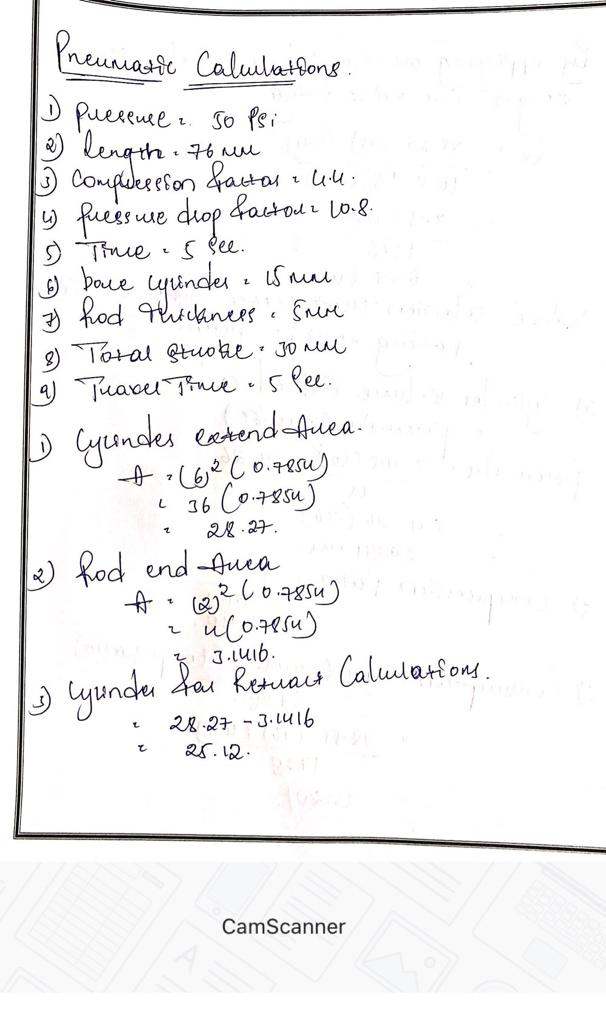 Pneumatic Calculations.
1) Pressure = 50 Psi
2) length = 76 mm
3) Compression factor = 4.4.
4) pressure drop factor = 10.8.
5) Time = 5 Sec.
6) bore cylinder = 15 mm
7) Rod thickness = 5mm
8) Total stroke = 30 mm
9) Travel Time = 5 Sec.
1) Cylinder extend Area.
A = (6)² (0.7854)
= 36 (0.7854)
= 28.27.
2) Rod end Area
A = (2)² (0.7854)
= 4(0.7854)
= 3.1416.
3) Cylinder for Retract Calculations.
= 28.27 - 3.1416
= 25.12.
CamScanner